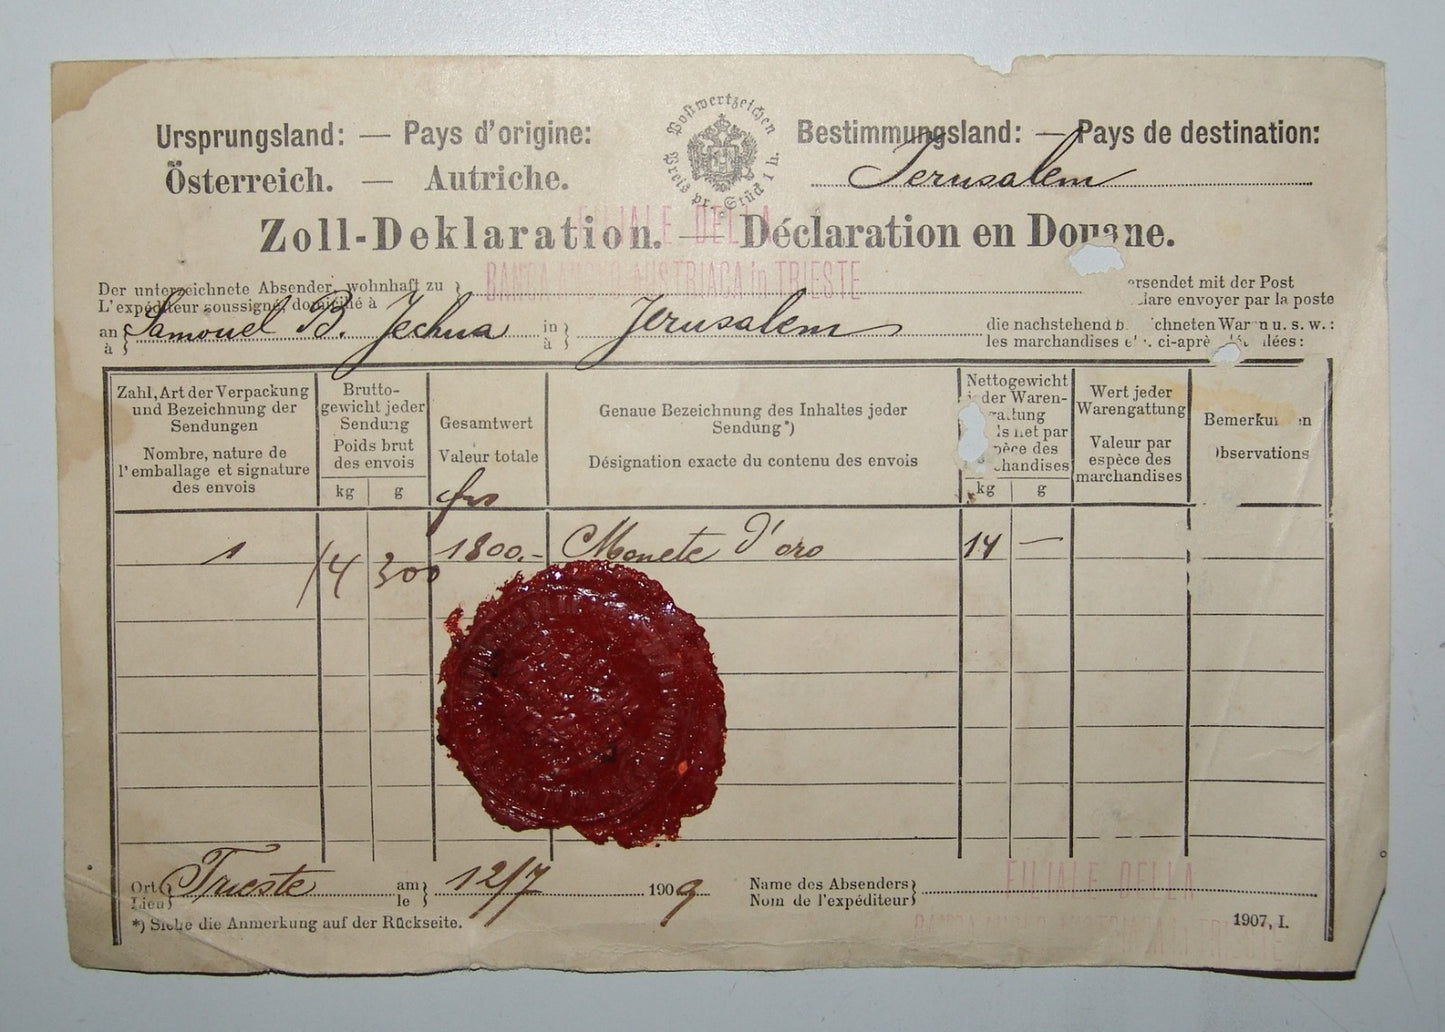 Ursprungsland: — Pays d'origine:
Österreich. — Autriche.
Postwertzeichen
Preis pr. Stück 1 h.
Bestimmungsland: — Pays de destination:
Jerusalem
Zoll-Deklaration. — Déclaration en Douane.
FILIALE DELLA
BANCA ANGLO AUSTRIACA in TRIESTE
Der unterzeichnete Absender, wohnhaft zu } ersendet mit der Post
L'expéditeur soussigné, domicilié à lare envoyer par la poste
an à } Samouel B. Jechua in à } Jerusalem die nachstehend b chneten Waren u. s. w.:
les marchandises ci-apr lées:
Zahl, Art der Verpackung und Bezeichnung der Sendungen
Nombre, nature de l'emballage et signature des envois
Brutto-gewicht jeder Sendung
Poids brut des envois
kg g
Gesamtwert
Valeur totale
frs
Genaue Bezeichnung des Inhaltes jeder Sendung*)
Désignation exacte du contenu des envois
Nettogewicht jeder Waren-gattung
ds net par espèce des marchandises
kg g
Wert jeder Warengattung
Valeur par espèce des marchandises
Bemerkun en
bservations
1 14 300 1800.- Monete d'oro 14 —
Ort Lieu } Trieste am le } 12/7 1909 Name des Absenders
Nom de l'expéditeur }
FILIALE DELLA
*) Siehe die Anmerkung auf der Rückseite.
1907, I.